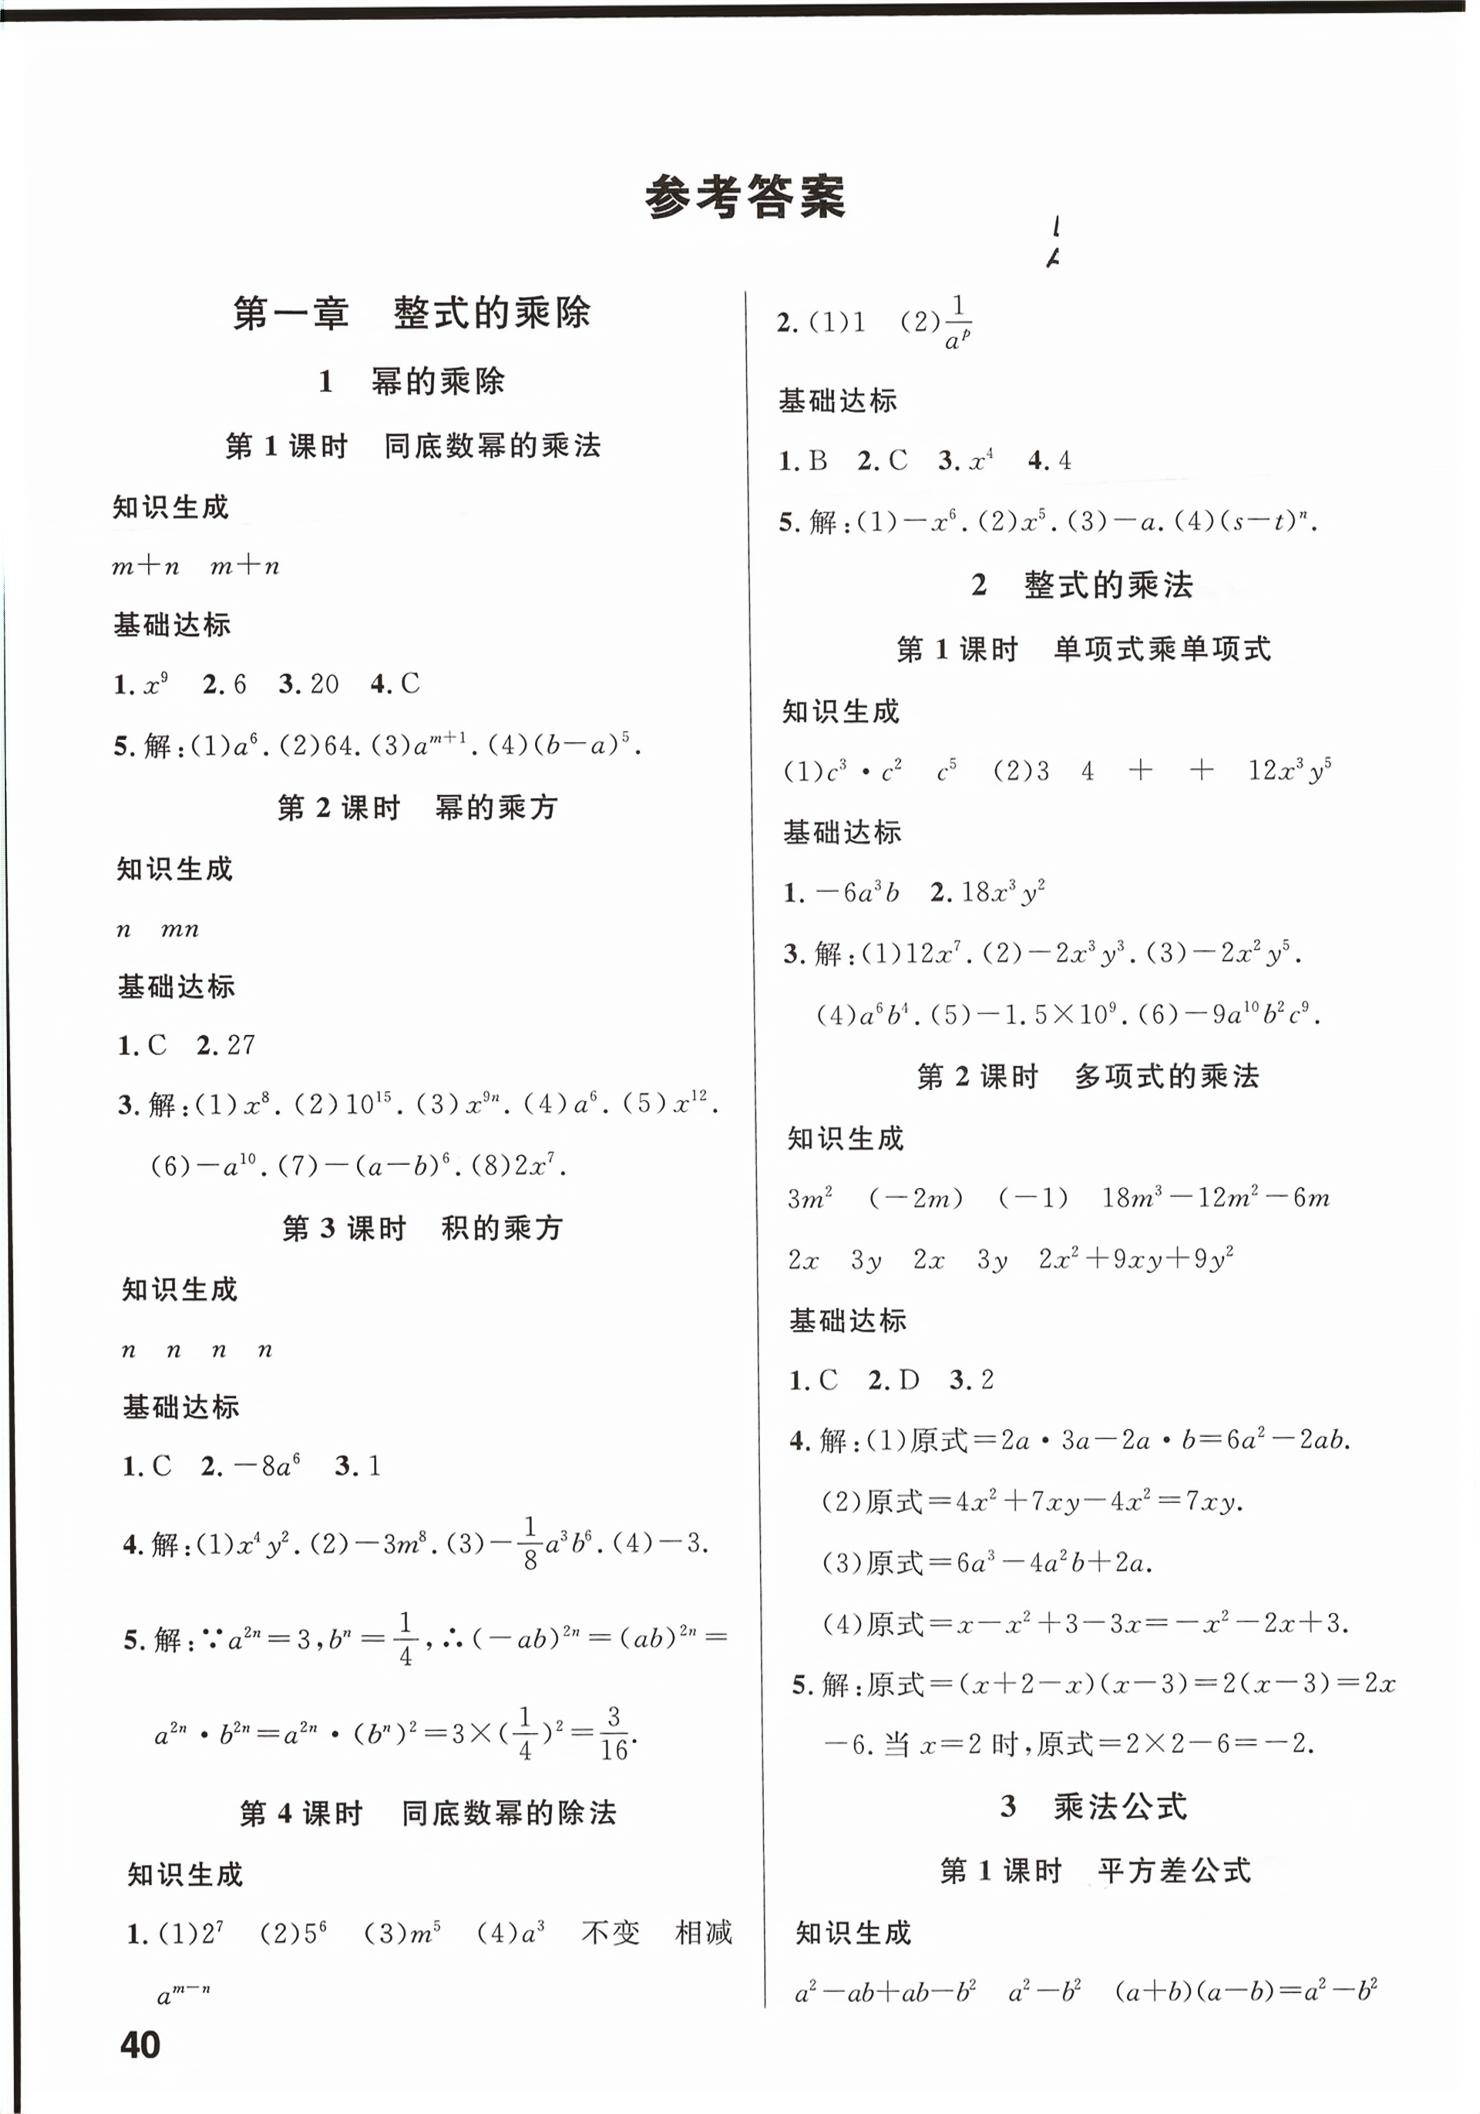 参考答案
第一章　整式的乘除
1　幂的乘除
第 1 课时　同底数幂的乘法
知识生成
m+n　m+n
基础达标
1. x⁹　2. 6　3. 20　4. C
5. 解:(1)a⁶. (2)64. (3)aᵐ⁺¹. (4)(b－a)⁵.
第 2 课时　幂的乘方
知识生成
n　mn
基础达标
1. C　2. 27
3. 解:(1)x⁸. (2)10¹⁵. (3)x⁹ⁿ. (4)a⁶. (5)x¹².
(6)－a¹⁰. (7)－(a－b)⁶. (8)2x⁷.
第 3 课时　积的乘方
知识生成
n　n　n　n
基础达标
1. C　2. －8a⁶　3. 1
4. 解:(1)x⁴y². (2)－3m⁸. (3)－1/8a³b⁶. (4)－3.
5. 解:∵a²ⁿ＝3, bⁿ＝1/4, ∴(－ab)²ⁿ＝(ab)²ⁿ＝
a²ⁿ·b²ⁿ＝a²ⁿ·(bⁿ)²＝3×(1/4)²＝3/16.
第 4 课时　同底数幂的除法
知识生成
1. (1)2⁷　(2)5⁶　(3)m⁵　(4)a³　不变　相减
aᵐ⁻ⁿ
2. (1)1　(2)1/aᵖ
基础达标
1. B　2. C　3. x⁴　4. 4
5. 解:(1)－x⁶. (2)x⁵. (3)－a. (4)(s－t)ⁿ.
2　整式的乘法
第 1 课时　单项式乘单项式
知识生成
(1)c³·c²　c⁵　(2)3　4　＋　＋　12x³y⁵
基础达标
1. －6a³b　2. 18x³y²
3. 解:(1)12x⁷. (2)－2x³y³. (3)－2x²y⁵.
(4)a⁶b⁴. (5)－1.5×10⁹. (6)－9a¹⁰b²c⁹.
第 2 课时　多项式的乘法
知识生成
3m²　(－2m)　(－1)　18m³－12m²－6m
2x　3y　2x　3y　2x²＋9xy＋9y²
基础达标
1. C　2. D　3. 2
4. 解:(1)原式＝2a·3a－2a·b＝6a²－2ab.
(2)原式＝4x²＋7xy－4x²＝7xy.
(3)原式＝6a³－4a²b＋2a.
(4)原式＝x－x²＋3－3x＝－x²－2x＋3.
5. 解:原式＝(x＋2－x)(x－3)＝2(x－3)＝2x
－6. 当 x＝2 时,原式＝2×2－6＝－2.
3　乘法公式
第 1 课时　平方差公式
知识生成
a²－ab＋ab－b²　a²－b²　(a＋b)(a－b)＝a²－b²
40